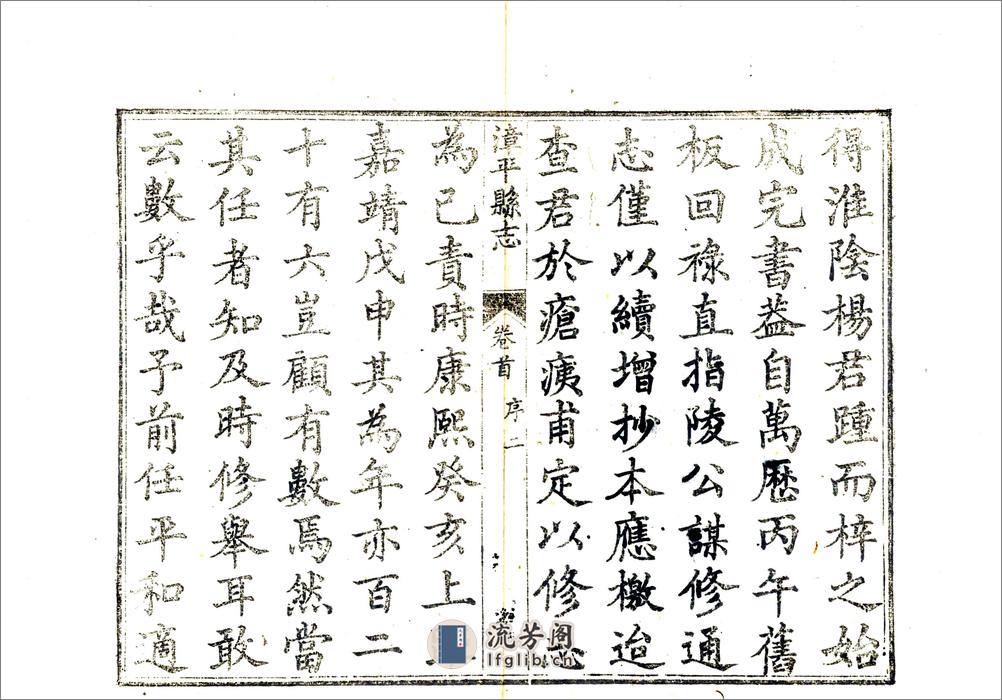 得淮陰楊君踵而梓之始
成完書葢自萬歷丙午舊
板回祿直指陵公謀修通
志僅以續增抄本應檄迨
查君於瘡痍甫定以修
漳平縣志 卷首 序 二
為已責時康熙癸亥上
嘉靖戊申其為年亦百二
十有六豈顧有數焉然當
其任者知及時修舉耳敢
云數乎哉予前任平和適
流芳阁
lfglib.cn